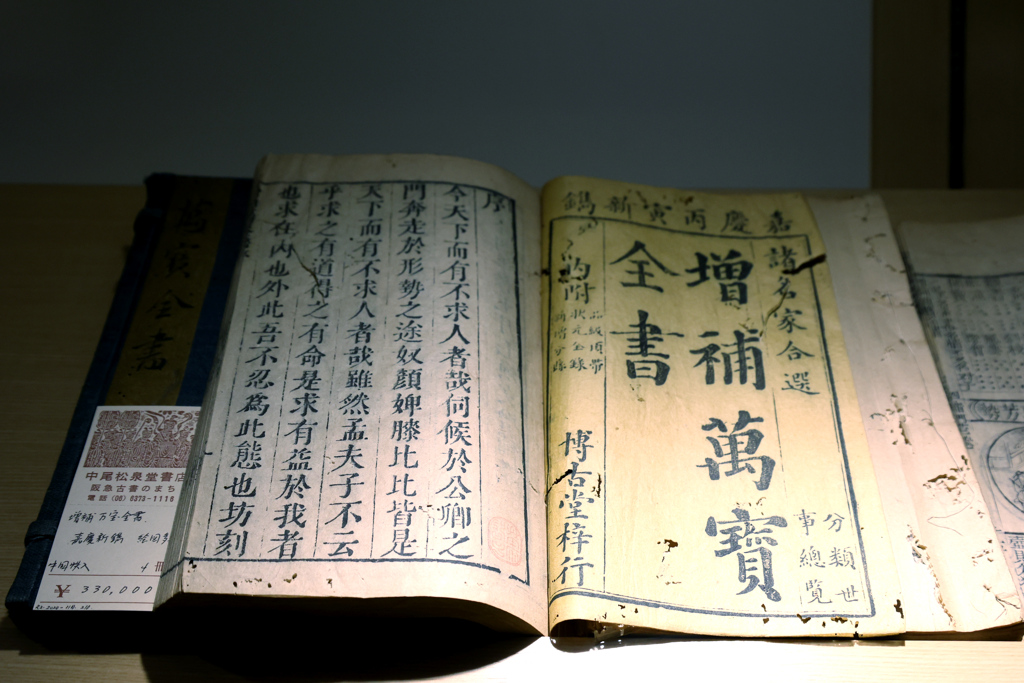 嘉慶丙寅新鐫
諸名家合選
增補萬寶
全書
分類世
事總覽
博古堂梓行
序
今天下而有不求人者哉伺候於公卿之
門奔走於形勢之途奴顏婢膝比比皆是
天下而有不求人者哉雖然孟夫子不云
乎求之有道得之有命是求有益於我者
也求在內也外此吾不忍為此態也坊刻
萬寶全書
中尾松泉堂書店
阪急古書のまち
電話(06)6373-1118
增補万宝全書
嘉慶新鐫
中国帙入
¥330,000